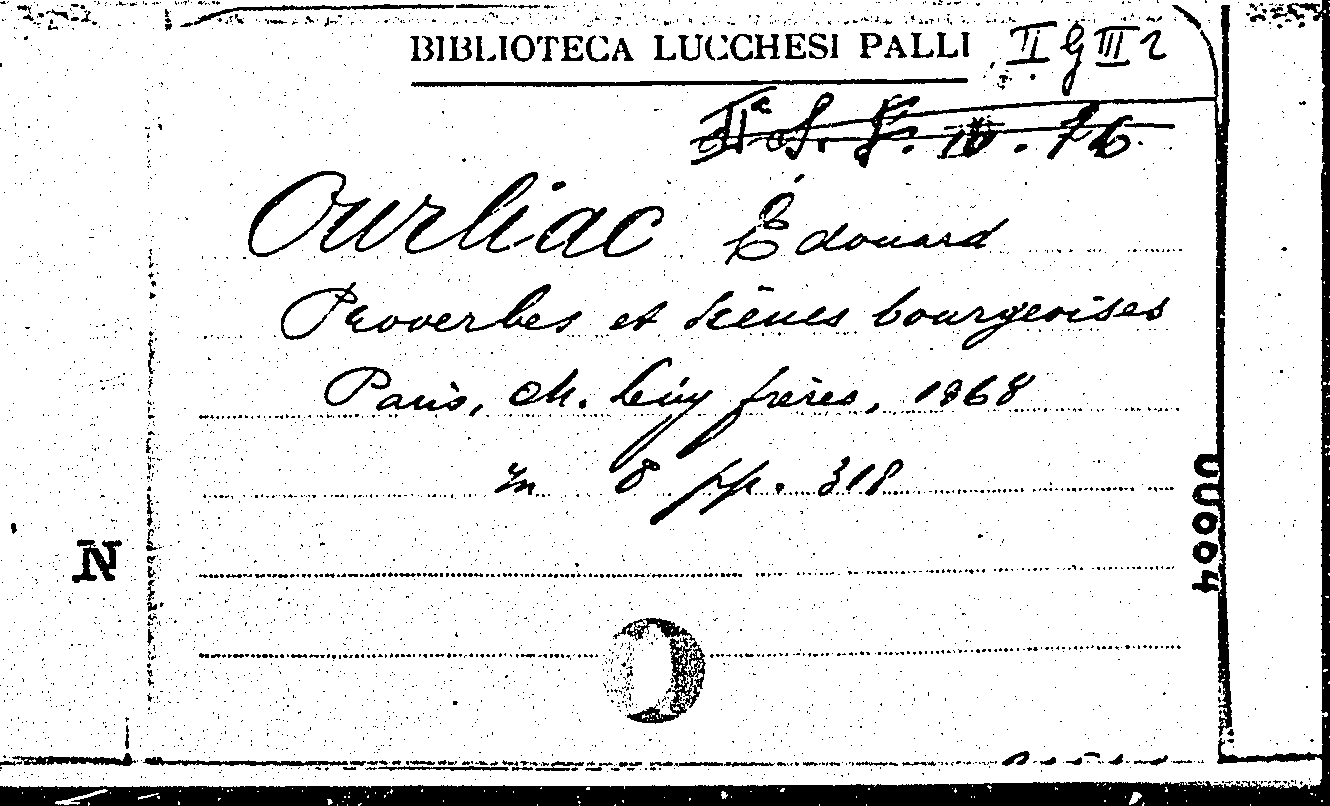 BIBLIOTECA LUCCHESI PALLI II g III 2
Ourliac Édouard
Proverbes et scènes bourgeoises
Paris, M. Lévy frères, 1868
in 8 pp. 318
N
00664